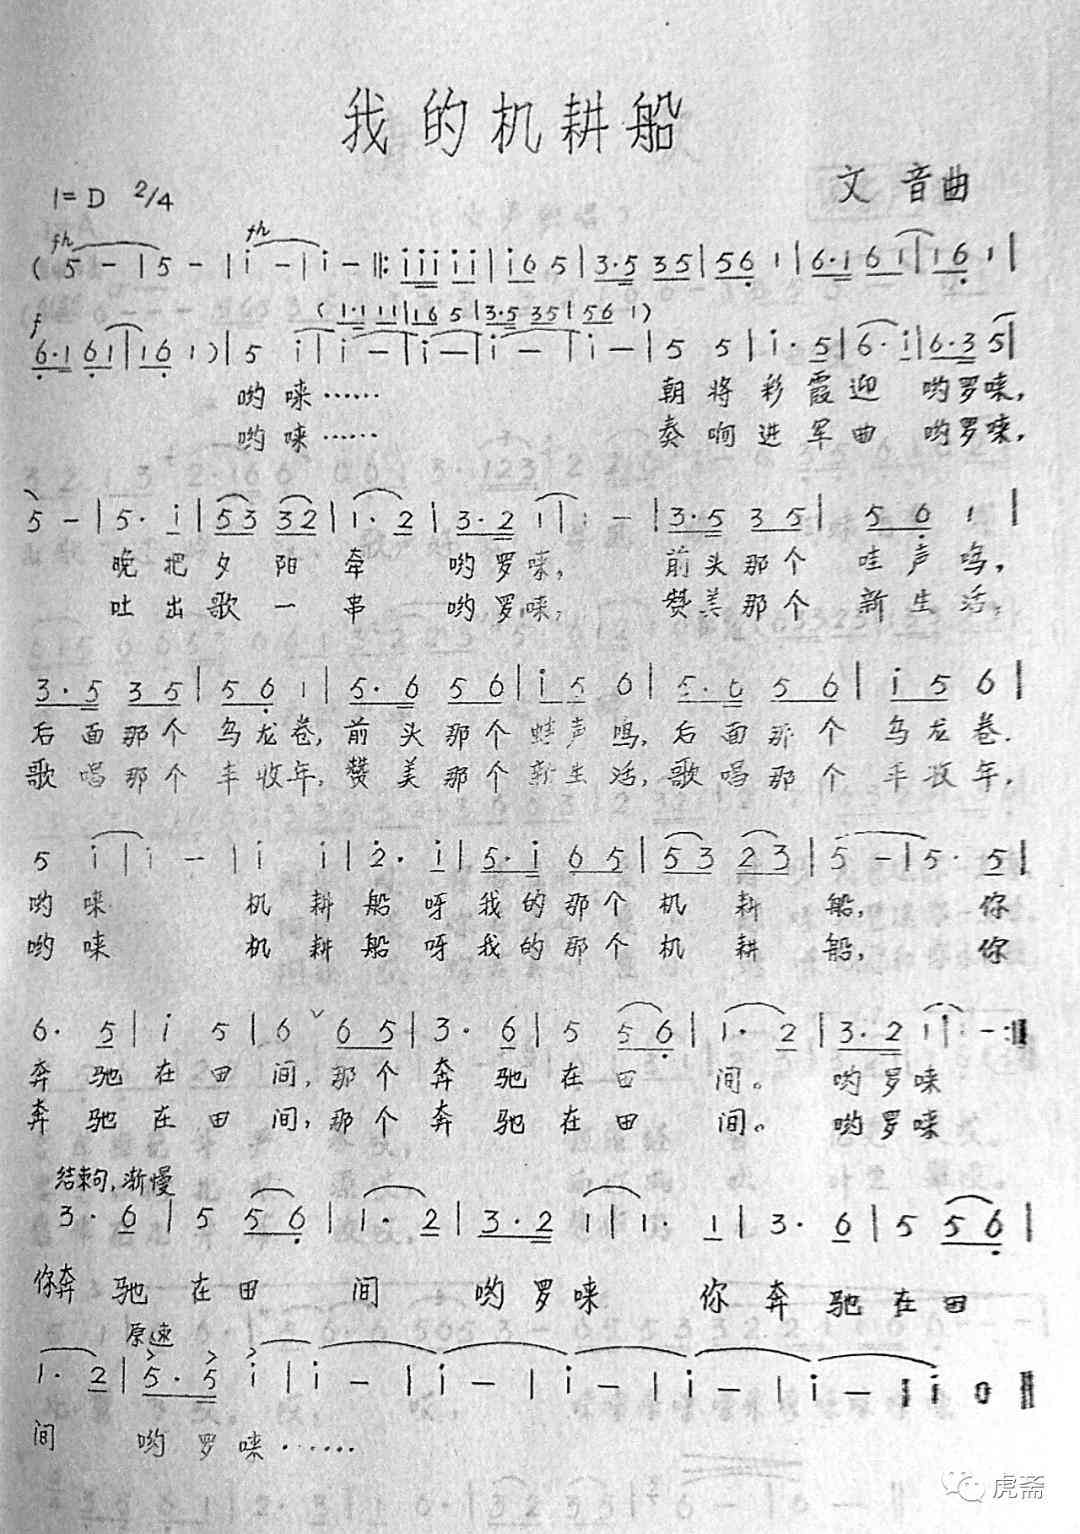 我的机耕船
1=D 2/4
文音曲
fh fh
( 5 - | 5 - | i - | i - ‖: i i i i i | i 6 5 | 3·5 3 5 | 5 6 1 | 6·1 6 1 | 1 6 1 |
f ( 1·1 1 1 | 1 6 5 | 3·5 3 5 | 5 6 1 )
6·1 6 1 | 1 6 1 ) | 5 i | i - | i - | i - | i - | 5 5 | i· 5 | 6· i | 6·3 5 |
哟唻…… 朝将彩霞迎 哟罗唻,
哟唻…… 奏响进军曲 哟罗唻,
5 - | 5· i | 5 3 3 2 | 1· 2 | 3·2 1 | 1 - | 3·5 3 5 | 5 6 1 |
晚把夕阳牵 哟罗唻, 前头那个哇声鸣,
吐出歌一串 哟罗唻, 赞美那个新生活,
3·5 3 5 | 5 6 1 | 5·6 5 6 | i 5 6 | 5·6 5 6 | i 5 6 |
后面那个乌龙卷, 前头那个蛙声鸣, 后面那个乌龙卷.
歌唱那个丰收年, 赞美那个新生活, 歌唱那个丰收年.
5 i | i - | i i | 2· i | 5·i 6 5 | 5 3 2 3 | 5 - | 5· 5 |
哟唻 机耕船呀我的那个机耕船, 你
哟唻 机耕船呀我的那个机耕船, 你
6· 5 | i 5 | 6 ˇ 6 5 | 3· 6 | 5 5 6 | 1· 2 | 3·2 1 | 1 - :‖
奔驰在田间, 那个奔驰在田间。哟罗唻
奔驰在田间, 那个奔驰在田间。哟罗唻
结束句,渐慢
3· 6 | 5 5 6 | 1· 2 | 3·2 1 | 1· 1 | 3· 6 | 5 5 6 |
你奔驰在田间 哟罗唻 你奔驰在田
原速
1· 2 | 5·5 i | i - | i - | i - | i - | i - | i 0 ‖
间 哟罗唻……
虎斋